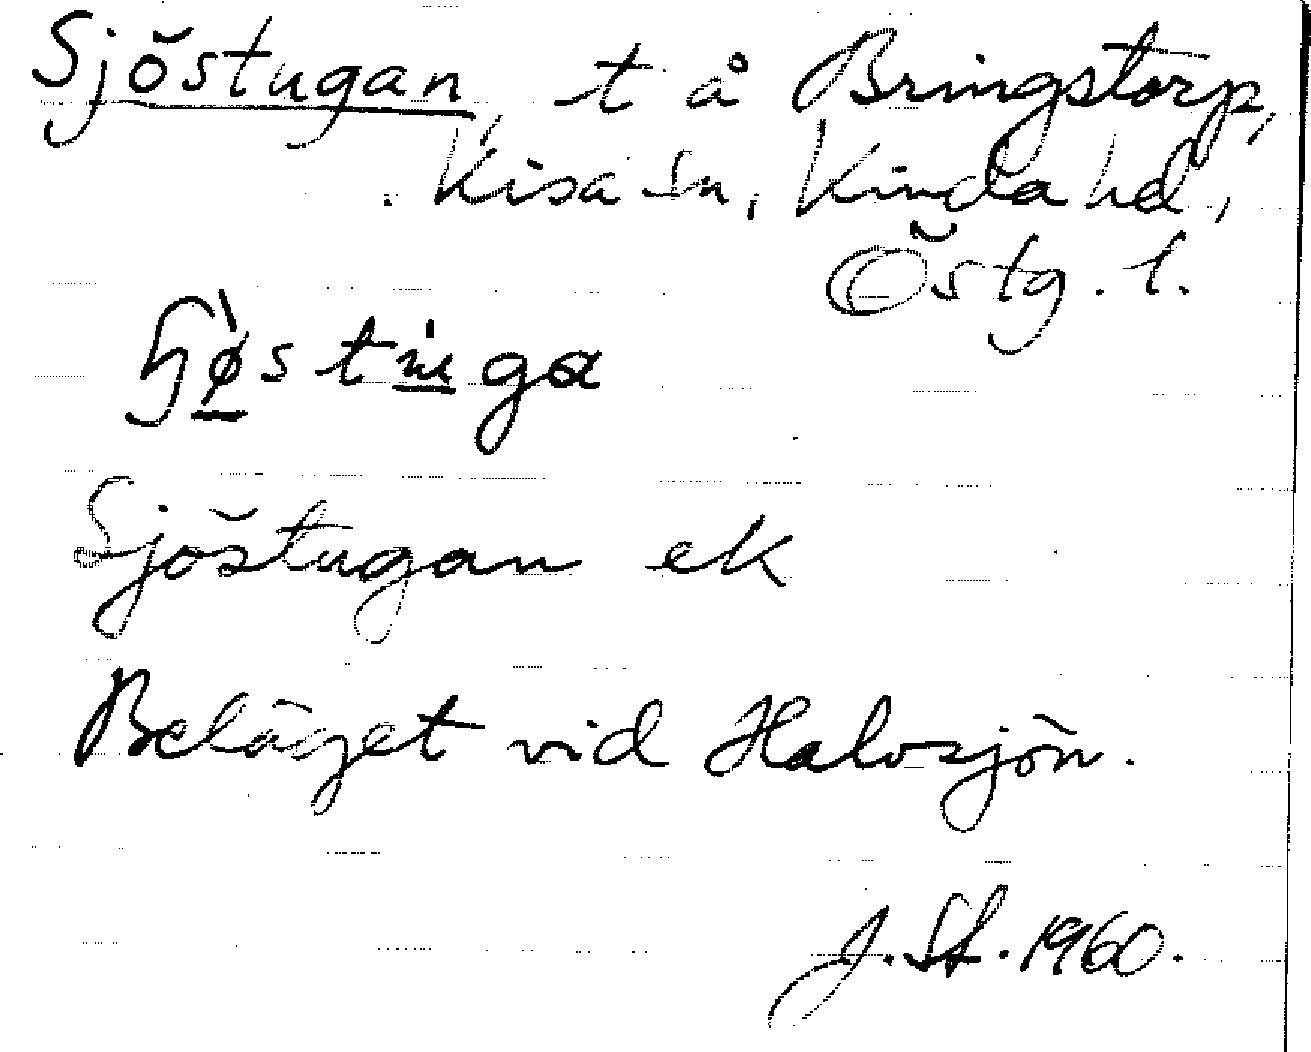 Sjöstugan, t å Bringstorp,
Kisa sn, Kinda hd,
Östg. l.
ɧø̀stu̇ga
Sjöstugan ek
Beläget vid Halvsjön.
J. St. 1960.